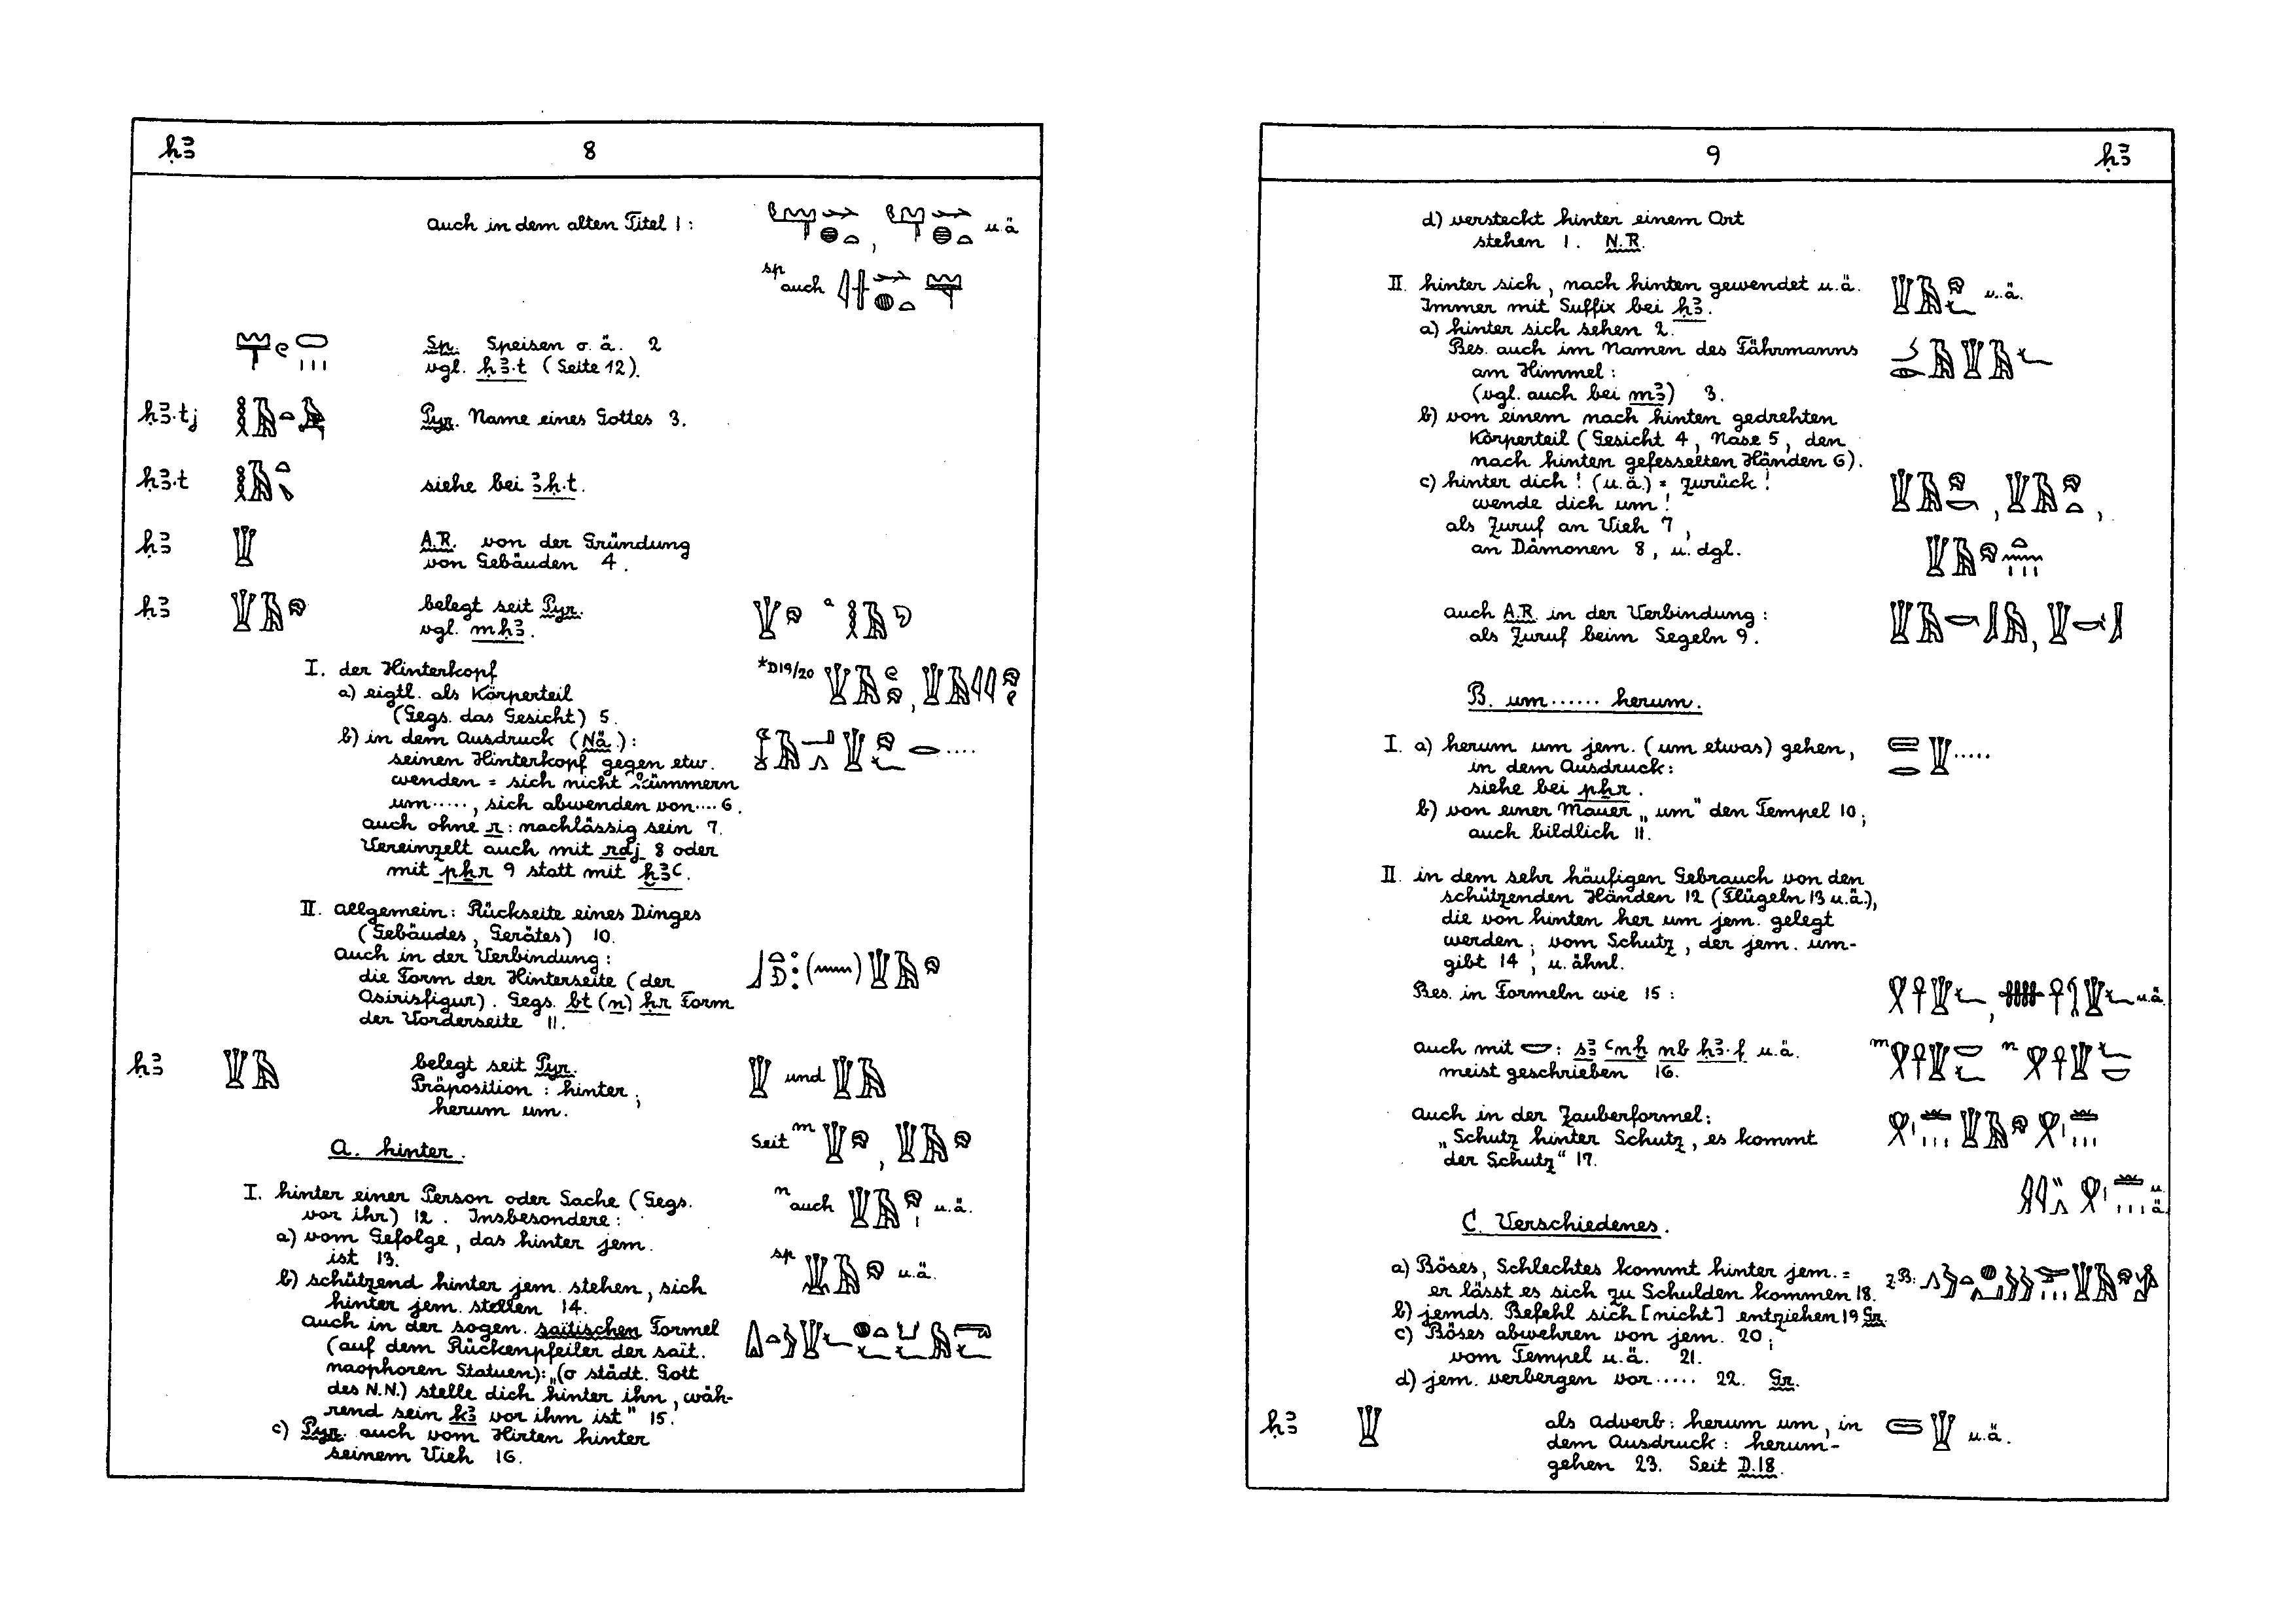 ḥꜣ 8
auch in dem alten Titel 1: u.ä
sp auch
Sp. Speisen o. ä. 2
vgl. ḥꜣ·t (Seite 12).
ḥꜣ·tj Pyr. Name eines Gottes 3.
ḥꜣ·t siehe bei ꜣḥ·t.
ḥꜣ A.R. von der Gründung
von Gebäuden 4.
ḥꜣ belegt seit Pyr. a
vgl. mḥꜣ.
I. der Hinterkopf *D19/20
a) eigtl. als Körperteil
(Gegs. das Gesicht) 5.
b) in dem Ausdruck (Nä.):
seinen Hinterkopf gegen etw.
wenden = sich nicht kümmern
um....., sich abwenden von.... 6.
auch ohne r: nachlässig sein 7.
Vereinzelt auch mit rdj 8 oder
mit pẖr 9 statt mit ḫꜣꜥ.
II. allgemein: Rückseite eines Dinges
(Gebäudes, Gerätes) 10.
Auch in der Verbindung:
die Form der Hinterseite (der
Osirisfigur). Gegs. bt (n) ḥr Form
der Vorderseite 11.
ḥꜣ belegt seit Pyr.
Präposition: hinter; und
herum um.
A. hinter. Seit m
I. hinter einer Person oder Sache (Gegs.
vor ihr) 12. Insbesondere: n auch u.ä.
a) vom Gefolge, das hinter jem.
ist 13. sp u.ä.
b) schützend hinter jem. stehen, sich
hinter jem. stellen 14.
auch in der sogen. saitischen Formel
(auf dem Rückenpfeiler der sait.
naophoren Statuen): „(o städt. Gott
des N.N.) stelle dich hinter ihn, wäh-
rend sein kꜣ vor ihm ist" 15.
c) Pyr. auch vom Hirten hinter
seinem Vieh 16.
9 ḥꜣ
d) versteckt hinter einem Ort
stehen 1. N.R.
II. hinter sich, nach hinten gewendet u.ä. u.ä.
Immer mit Suffix bei ḥꜣ.
a) hinter sich sehen 2.
Bes. auch im Namen des Fährmanns
am Himmel:
(vgl. auch bei mꜣ) 3.
b) von einem nach hinten gedrehten
Körperteil (Gesicht 4, Nase 5, den
nach hinten gefesselten Händen 6).
c) hinter dich! (u.ä.) = zurück!
wende dich um!
als Zuruf an Vieh 7,
an Dämonen 8, u. dgl.
auch A.R. in der Verbindung:
als Zuruf beim Segeln 9.
B. um...... herum.
I. a) herum um jem. (um etwas) gehen,
in dem Ausdruck:
siehe bei pẖr.
b) von einer Mauer „um" den Tempel 10;
auch bildlich 11.
II. in dem sehr häufigen Gebrauch von den
schützenden Händen 12 (Flügeln 13 u.ä.),
die von hinten her um jem. gelegt
werden; vom Schutz, der jem. um-
gibt 14, u. ähnl.
Bes. in Formeln wie 15: u.ä.
auch mit : sꜣ ꜥnḫ nb ḥꜣ·f u.ä. m n
meist geschrieben 16.
Auch in der Zauberformel:
„Schutz hinter Schutz, es kommt
der Schutz" 17.
u. ä.
C. Verschiedenes.
a) Böses, Schlechtes kommt hinter jem. = z.B:
er lässt es sich zu Schulden kommen 18.
b) jemds. Befehl sich [nicht] entziehen 19 Gr.
c) Böses abwehren von jem. 20;
vom Tempel u.ä. 21.
d) jem. verbergen vor..... 22. Gr.
ḥꜣ als Adverb: herum um, in
dem Ausdruck: herum- u.ä.
gehen 23. Seit D.18.